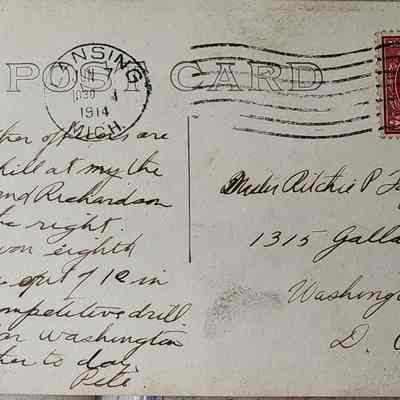 POST CARD
LANSING
JUN 7
1914
MICH.
her officers are
hill at my the
and Richardson
the right
won eighth
out of 10 in
ompetitive drill
Washington
her to day.
Pete.
Master Ritchie P
1315 Galla
Washing
D. C